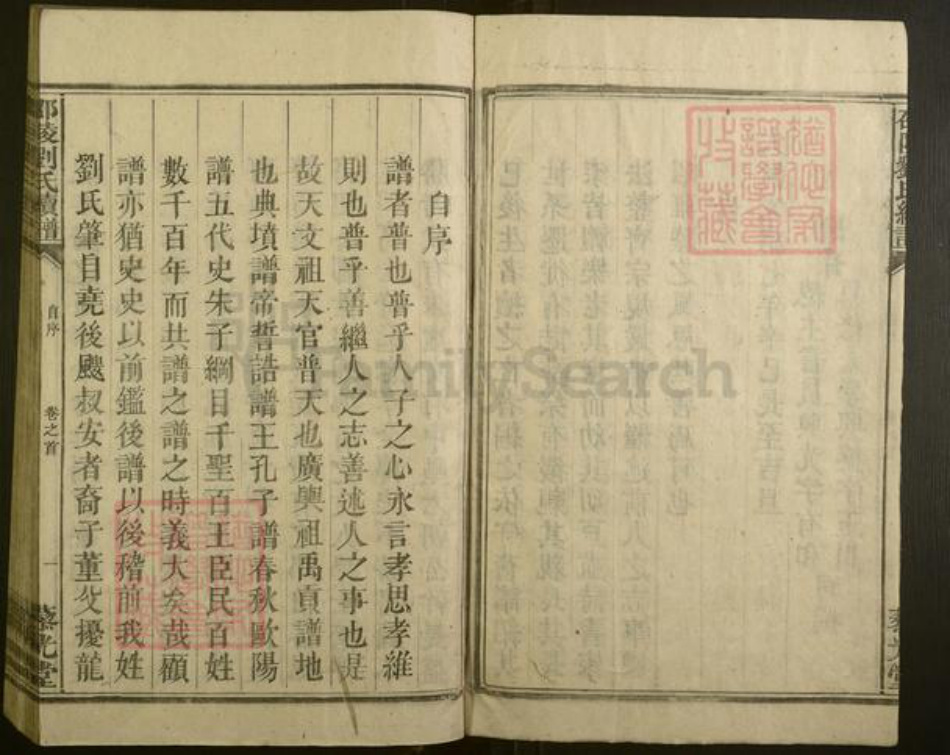 自序
譜者普也普乎人子之心永言孝思孝維
則也普乎善繼人之志善述人之事也是
故天文祖天官普天也廣輿祖禹貢譜地
也典墳譜帝誓誥譜王孔子譜春秋歐陽
譜五代史朱子綱目千聖百王臣民百姓
數千百年而共譜之譜之時義大矣哉顧
譜亦猶史史以前鑑後譜以後稽前我姓
劉氏肇自堯後颺叔安者裔子董父擾龍
邵陵劉氏續譜
自序
卷之首
一
藜光堂
FamilySearch